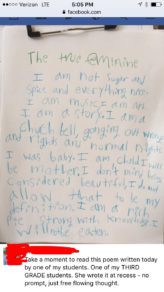 Verizon LTE 5:05 PM
facebook.com
The true feminine
I am not sugar and
spice and everything nice
I am music. I am art
I am a story. I am a
church bell, gonging out wrongs
and rights and normal nights
I was baby. I am child. I will
be mother. I don't mind being
considered beautiful, I do not
allow that to be my
definition. I am a rich
pie strong with knowledge. I
will not be eaten.
Take a moment to read this poem written
today by one of my students. One of my THIRD
GRADE students. She wrote it at recess - no
prompt, just free flowing thought.